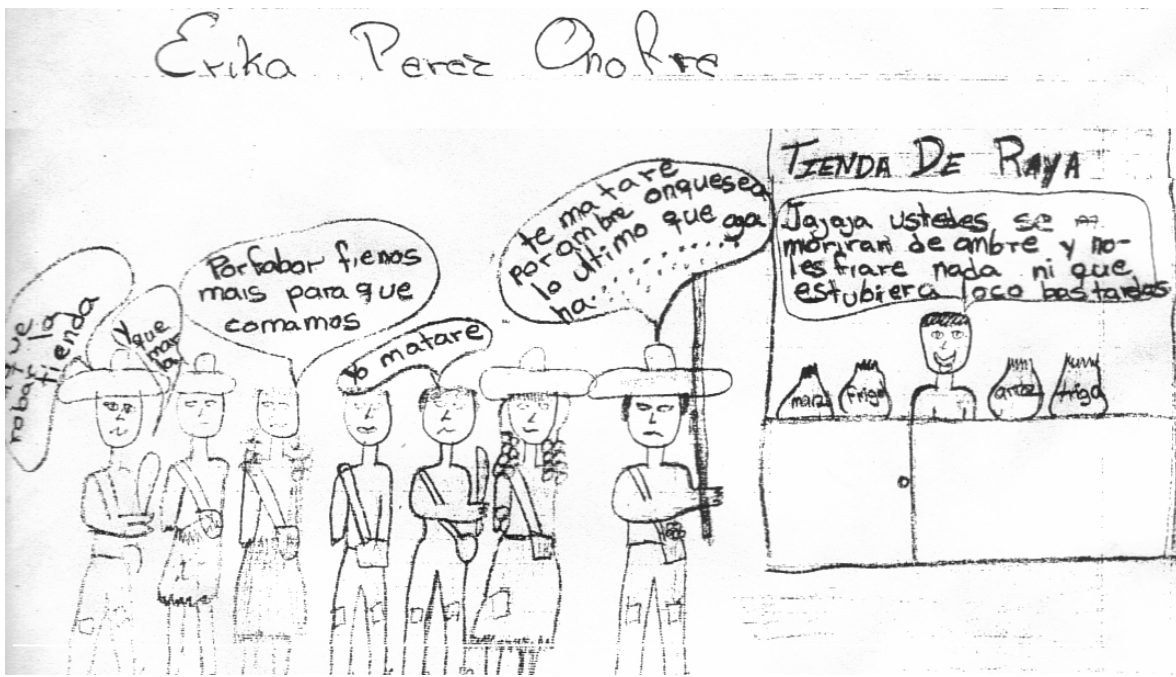 Erika Perez Onofre
robar la
tienda
y
que
mar
la
Porfabor fienos
mais para que
comamos
Yo matare
te matare
por ambre onquesea
lo ultimo que aga
ha..........
TIENDA DE RAYA
Jajaja ustedes se
moriran de ambre y no-
les fiare nada ni que
estubiera loco bastardos
maiz
Frigo
arroz
trigo